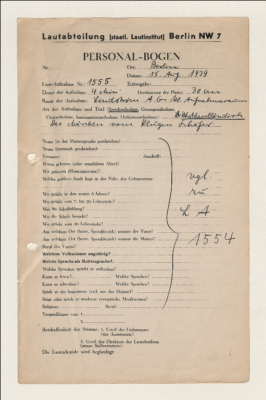 Lautabteilung (staatl. Lautinstitut) Berlin NW 7
PERSONAL-BOGEN
Nr. Ort: Berlin
Datum: 15. Aug 1939
Laut-Aufnahme Nr.: 1555 Zeitangabe:
Dauer der Aufnahme: 4 Min. Durchmesser der Platte: 30 cm
Raum der Aufnahme: Lindström A.G.
Art der Aufnahme und Titel
Das Märchen vom klugen Schäfer
Name (in der Muttersprache geschrieben):
Name (lateinisch geschrieben):
Vorname: Anschrift:
Wann geboren (oder ungefähres Alter)?
Wo geboren (Heimatsort)?
Welche größere Stadt liegt in der Nähe des Geburtsortes:
Wo gelebt in den ersten 6 Jahren?
Wo gelebt vom 7. bis 20. Lebensjahr?
Was für Schulbildung?
Wo die Schule besucht?
Wo gelebt vom 20. Lebensjahr?
Aus welchem Ort (bzw. Sprachbezirk) stammt der Vater?
Aus welchem Ort (bzw. Sprachbezirk) stammt die Mutter?
Beruf des Vaters?
Welchem Volksstamm angehörig?
Welche Sprache als Muttersprache?
Welche Sprachen spricht er außerdem?
Kann er lesen? Welche Sprachen?
Kann er schreiben? Welche Sprachen?
Spielt er ein Instrument
Singt oder spielt er moderne europäische Musikweisen?
Religion: Beruf:
Vorgeschlagen von: 1.
2.
Beschaffenheit der Stimme: 1. Urteil des Fachmannes
2. Urteil des Direktors der Lautabteilung
(seines Stellvertreters)
Die Lauturkunde wird beglaubigt:
vgl.
zu
LA
1554